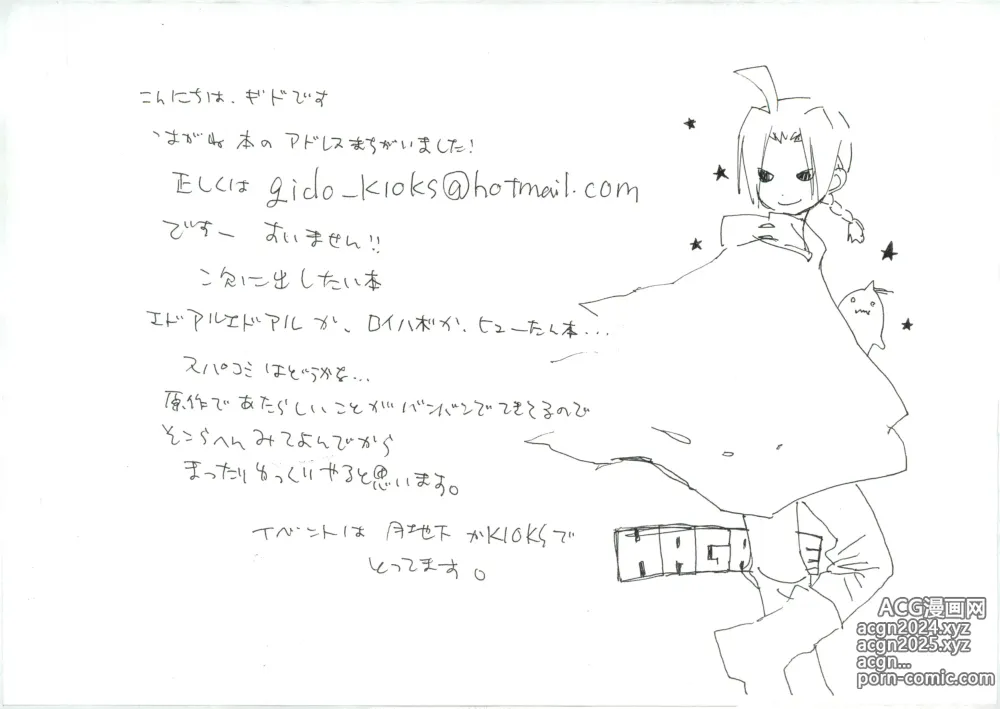 こんにちは、ギドです
はがね本のアドレスまちがいました!
正しくは gido_kioks@hotmail.com
ですー すいません!!
次に出したい本
エドアルエドアルか、ロイハボか、ヒューたん本...
スパコミはどうかな...
原作であたらしいことがバンバンでてきてるので
そこらへんみてよんでから
まったりゆっくりやると思います。
イベントは 月地下かKIOKSで
とってます。
ACG漫画网
acgn2024.xyz
acgn2025.xyz
acgn...
porn-comic.com